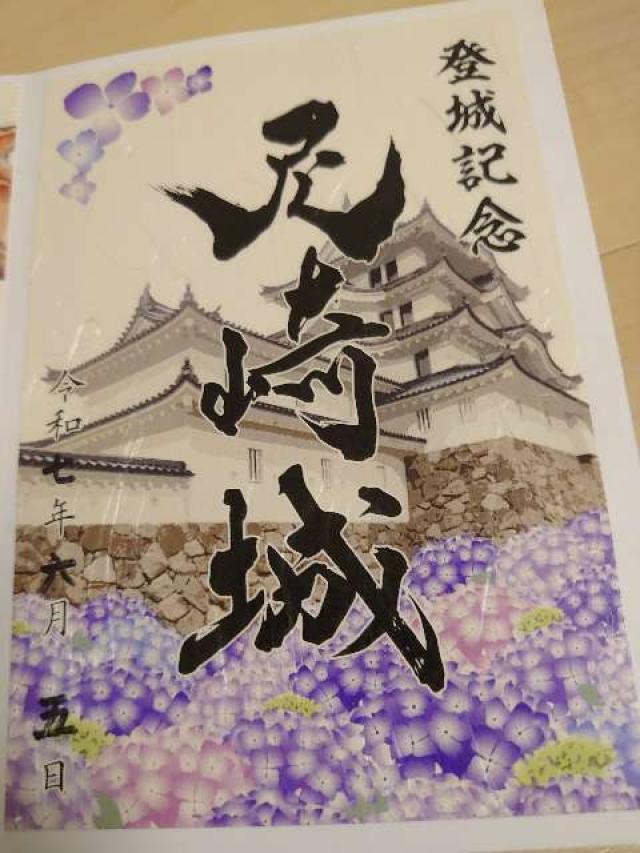 登城記念
尼崎城
令和七年六月五日